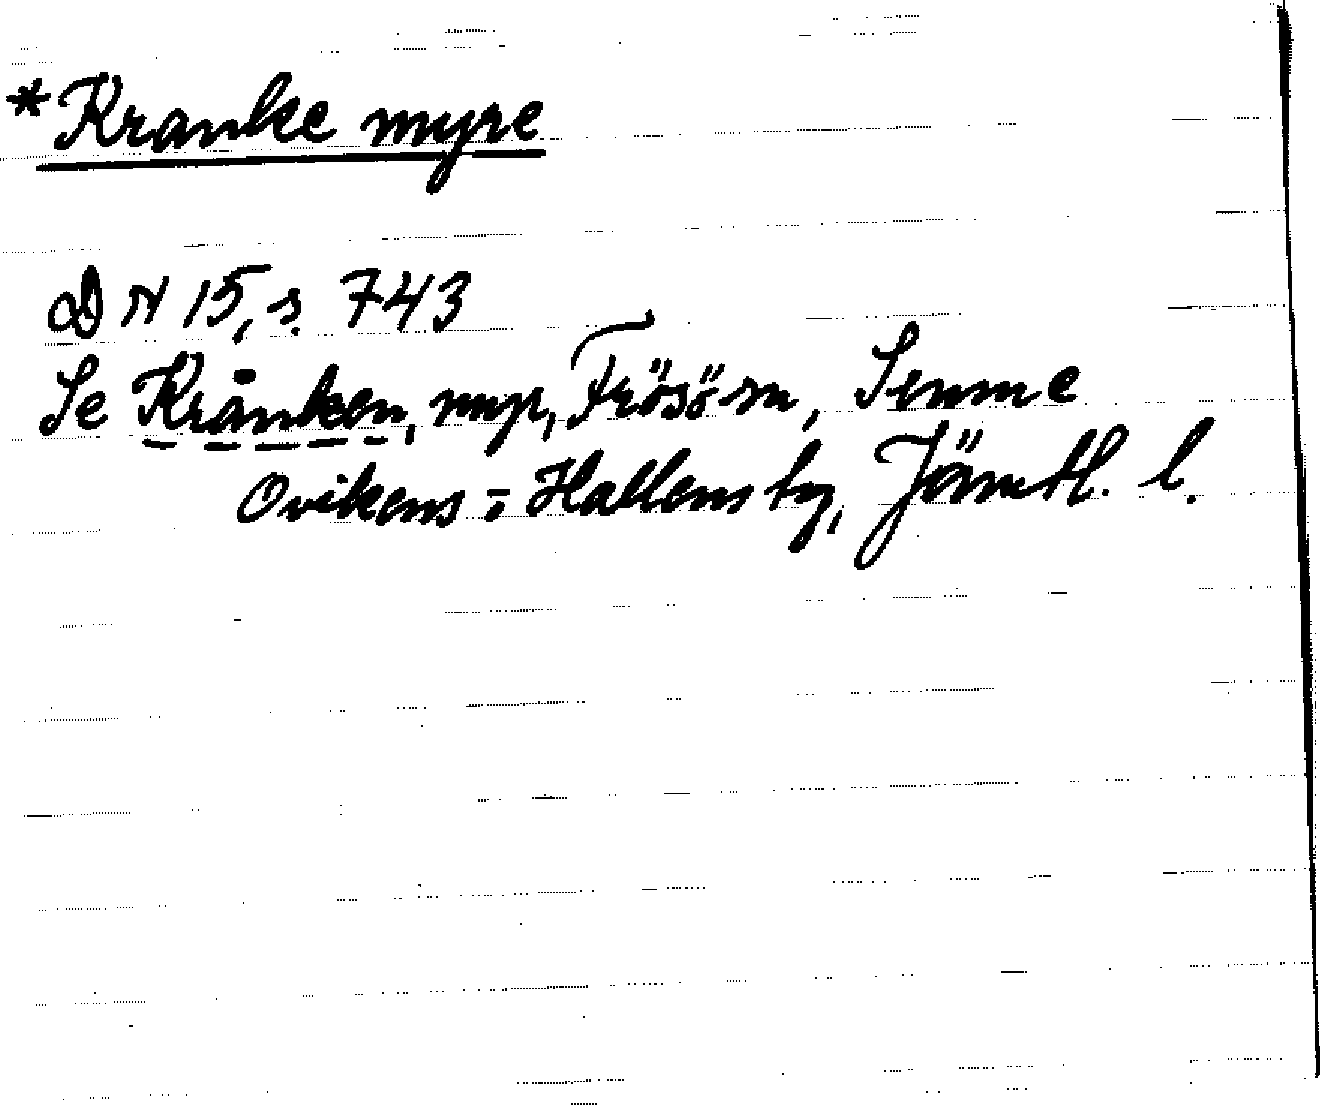 *Kranke myre
DN 15, s. 743
Se Krånken, myr, Frösö sn, Sunne
Ovikens- o. Hallens tg, Jämtl. l.